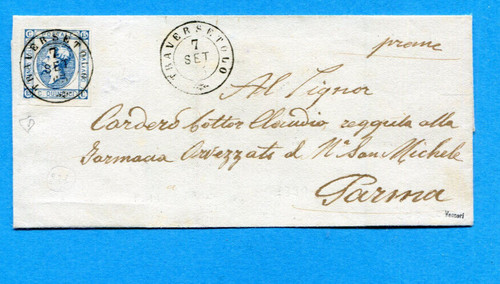 TRAVERSETOLO
7
SET
TRAVERSETOLO
7
SET
Al Signor
Cardero Dottor Claudio reggente alla
Farmacia Arvezzats d. No San Michele
Parma
Vaccari